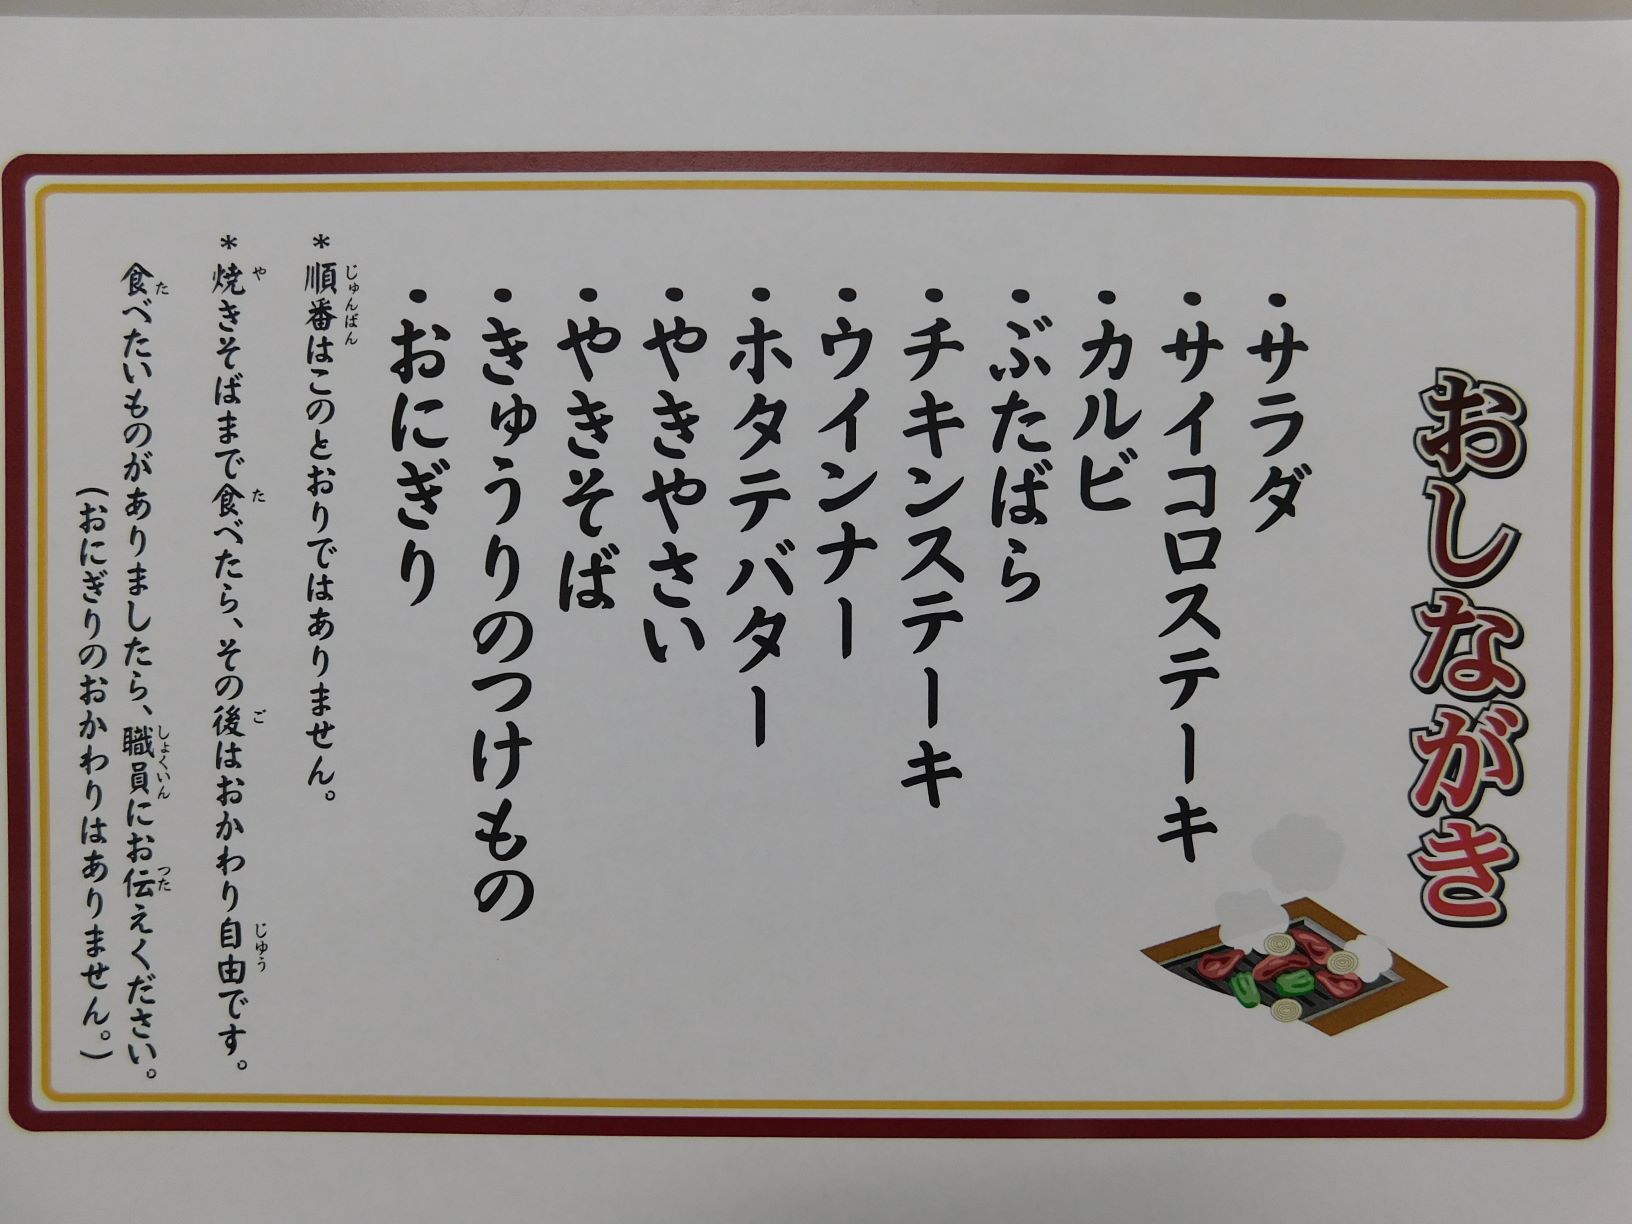 おしながき
・サラダ
・サイコロステーキ
・カルビ
・ぶたばら
・チキンステーキ
・ウインナー
・ホタテバター
・やきやさい
・やきそば
・きゅうりのつけもの
・おにぎり
＊順番はこのとおりではありません。
＊焼きそばまで食べたら、その後はおかわり自由です。
食べたいものがありましたら、職員にお伝えください。
（おにぎりのおかわりはありません。）